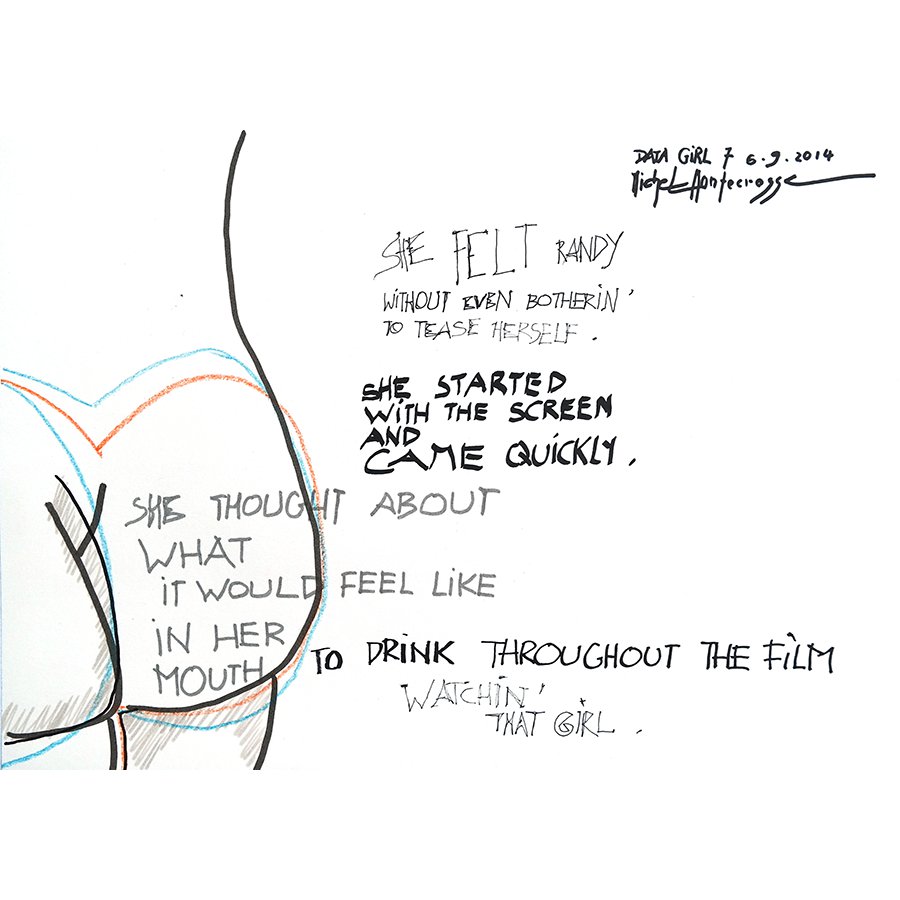 DATA GiRL 7 6.9.2014
Michel Montecrossa
SHE FELT RANDY
WiTHOUT EVEN BOTHERiN'
TO TEASE HERSELF.
SHE STARTED
WiTH THE SCREEN
AND
CAME QUiCKLY.
SHE THOUGHT ABOUT
WHAT
iT WOULD FEEL LiKE
iN HER
MOUTH TO DRiNK THROUGHOUT THE FiLM
WATCHiN'
THAT GiRL.